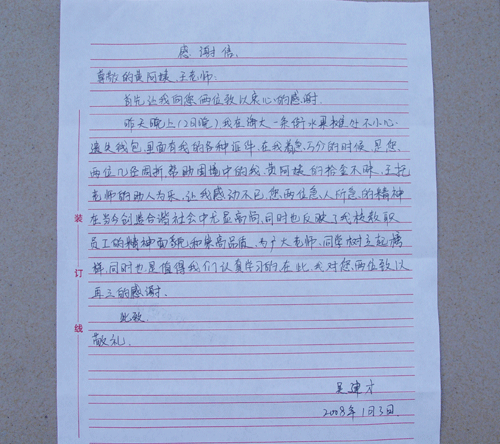 感谢信.
尊敬的黄阿姨、王老师:
首先让我向您两位致以衷心的感谢.
昨天晚上(2日晚)我在街大一条街水果摊处不小心
遗失钱包,里面有我的各种证件.在我着急万分的时候,是您
两位几经周折,帮助困境中的我.黄阿姨的拾金不昧,王
老师的助人为乐,让我感动不已.您两位急人所急的精神
在当今创造和谐社会中尤显高尚,同时也反映了我校教职
员工的精神面貌和崇高品质,为广大老师、同学树立起榜
样,同时也是值得我们认真学习的.在此,我对您两位致以
再三的感谢.
此致.
敬礼.
吴建才
2008年1月3日.
装
订
线